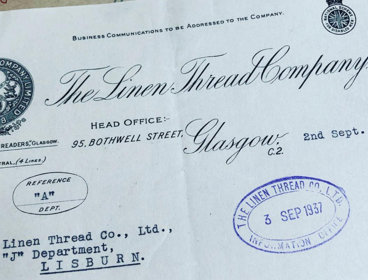 Business Communications to be Addressed to the Company.
The Linen Thread Company,
Head Office:-
95, Bothwell Street,
Glasgow.
C.2.
2nd Sept.
READERS, GLASGOW.
TRAL, (4 Lines)
REFERENCE
"A"
DEPT.
THE LINEN THREAD CO., LTD.
3 SEP 1937
INFORMATION OFFICE
Linen Thread Co., Ltd.,
"J" Department,
LISBURN.